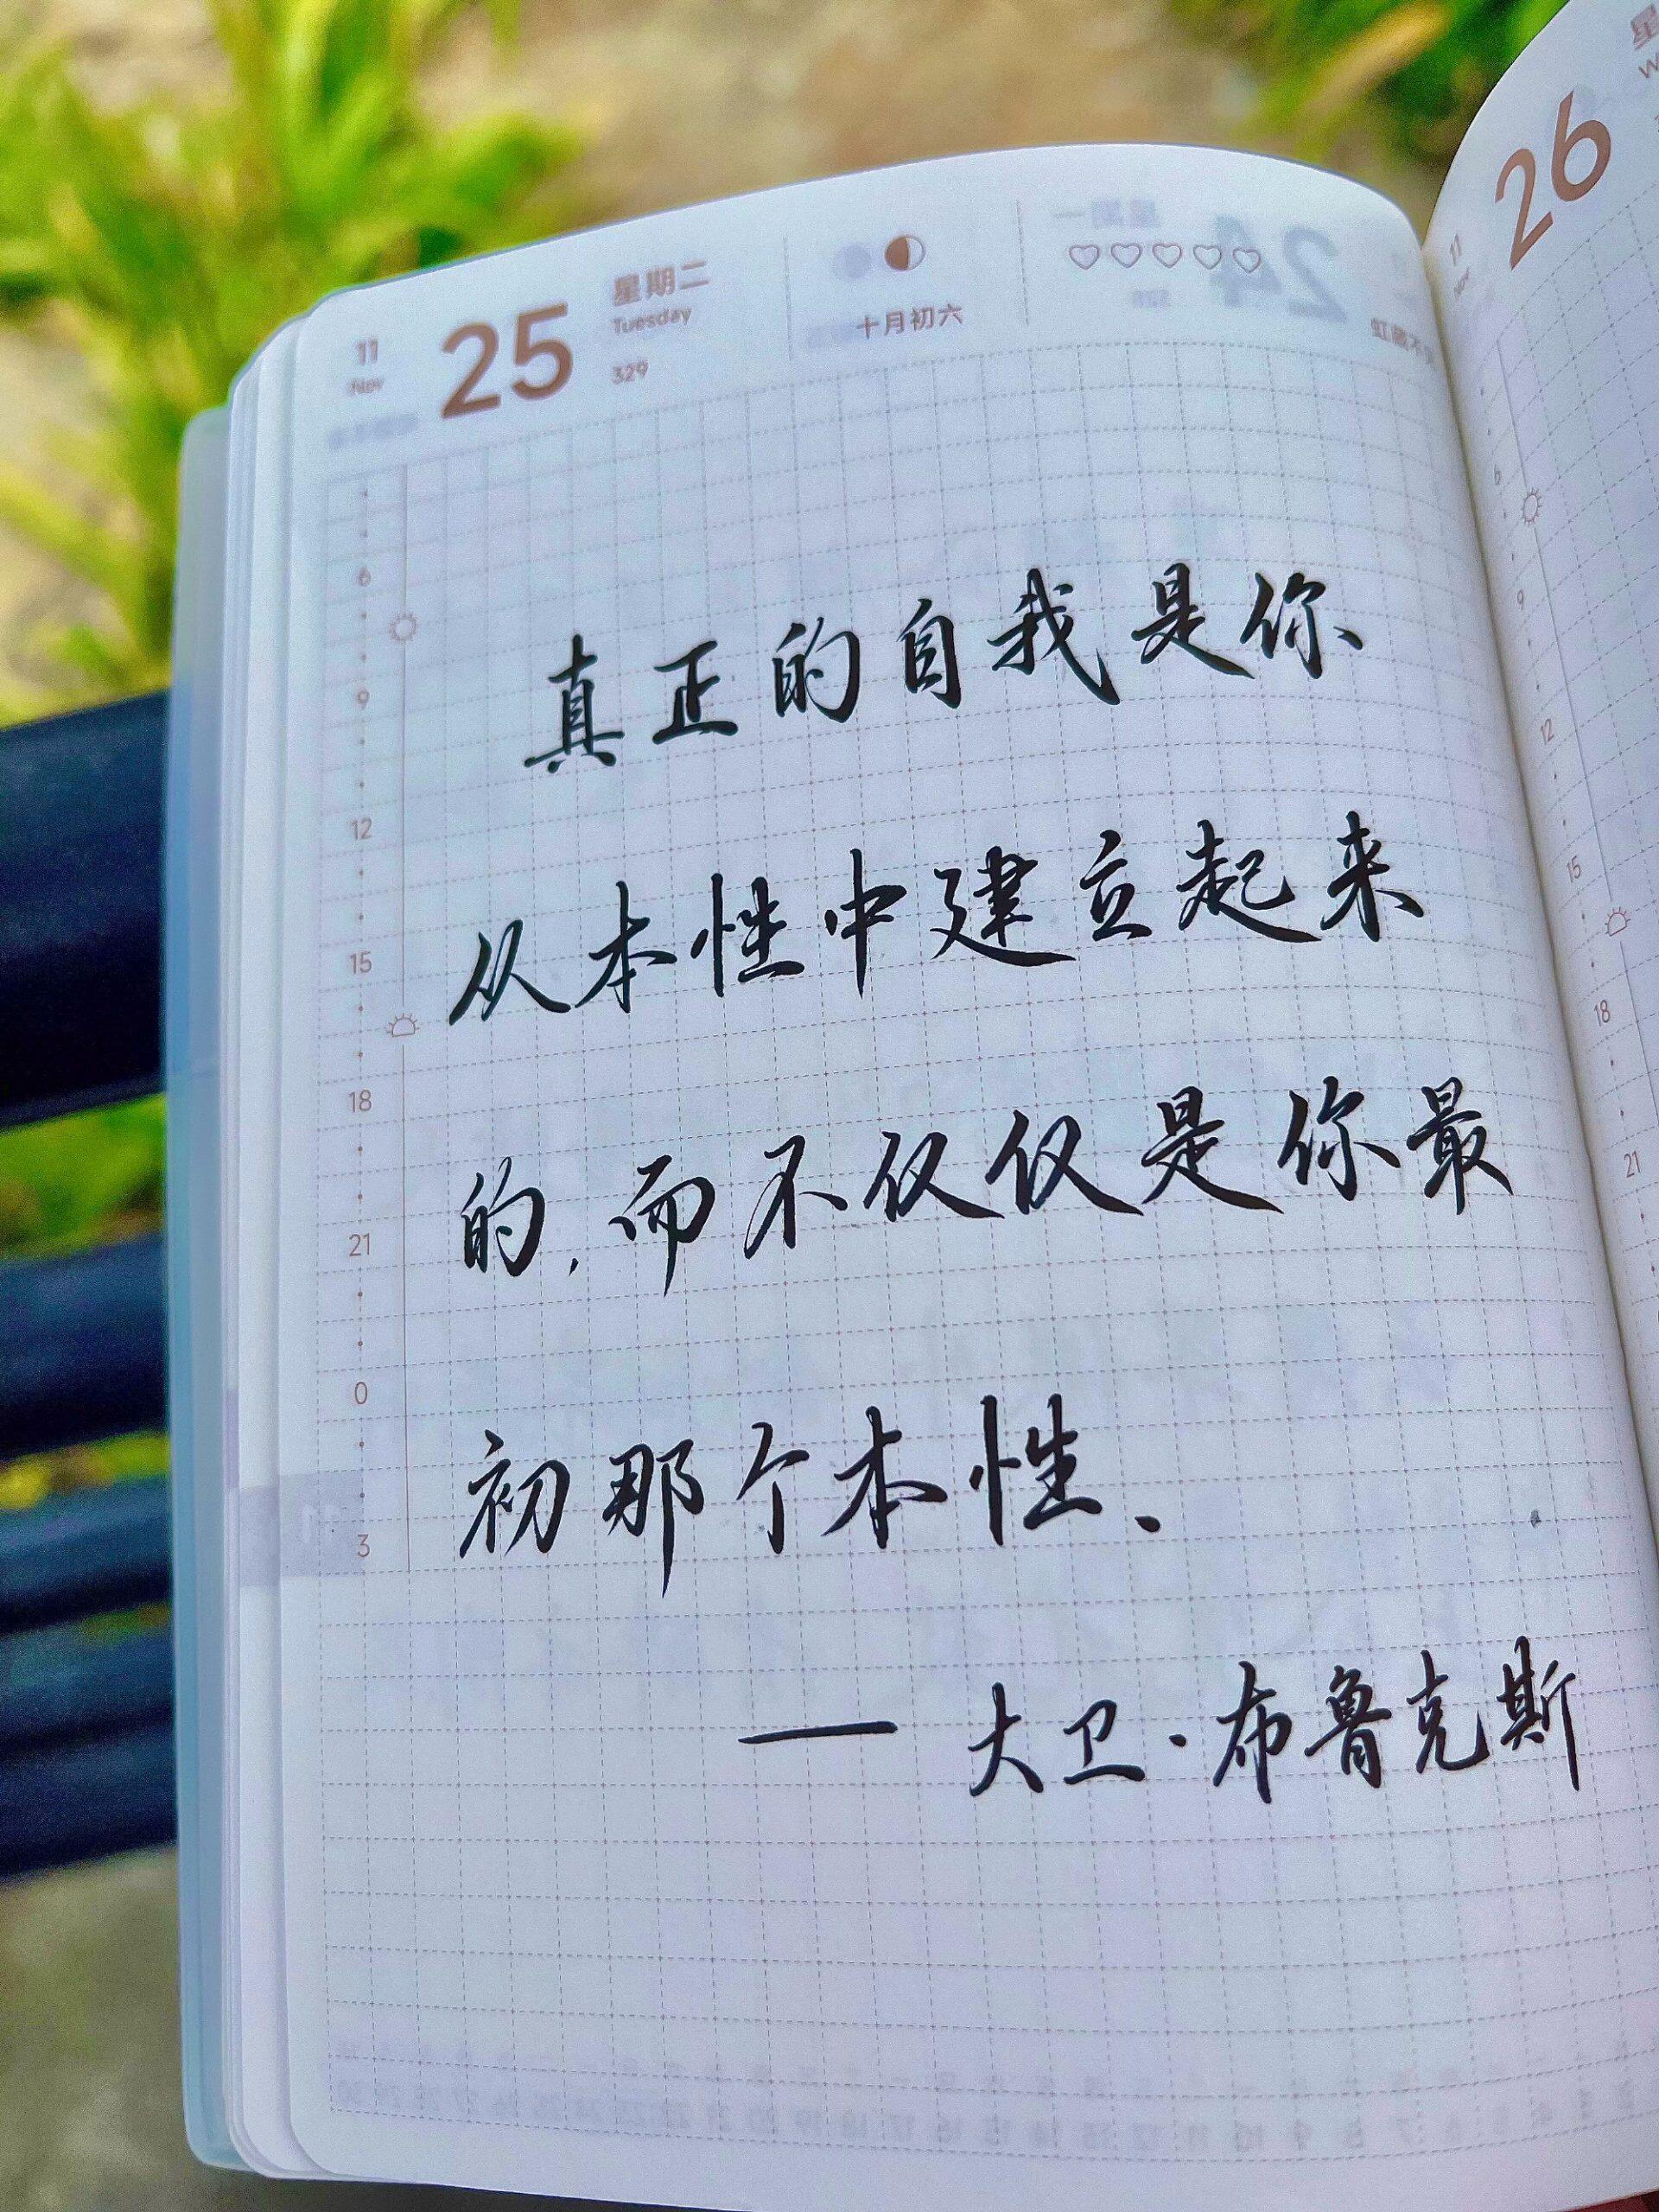 11
Nov
25
星期二
Tuesday
329
十月初六
真正的自我是你
从本性中建立起来
的,而不仅仅是你最
初那个本性、
— 大卫·布鲁克斯
6
9
12
15
18
21
0
3
26
11
Nov
6
9
12
15
18
21